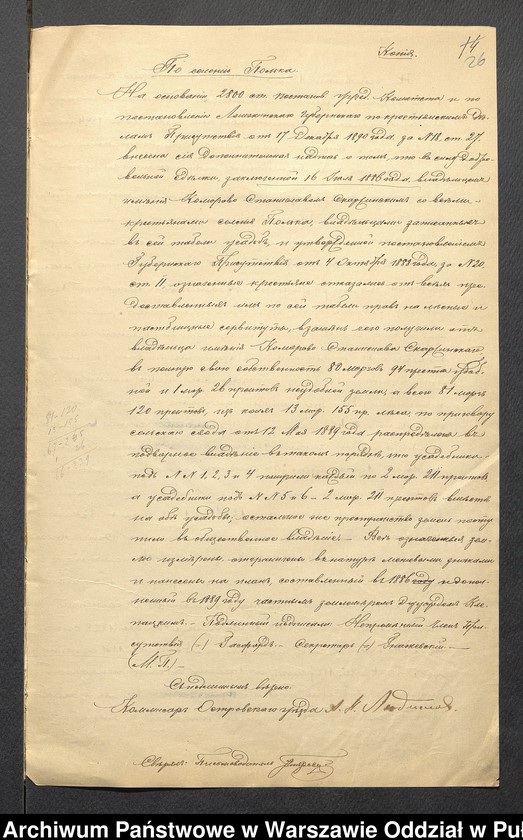 Копія.
14
26
По селенію Полька.
На основаніи 2800 ст. постанов. Учред. Комитета и по
постановленію Ломжинскаго Губернскаго по крестьянскимъ Дѣ-
ламъ Присутствія отъ 17 Декабря 1890 года за № 18, ст. 27,
внесена сія дополнительная надпись о томъ, что въ силу добро-
вольной сдѣлки, заключенной 16 Іюля 1886 года, владѣльцемъ
имѣнія Коморово Станиславомъ Скаржинскимъ со всѣми
крестьянами селенія Полька, владѣльцами записанныхъ
въ сей табели усадьбъ, и утвержденной постановленіемъ
Губернскаго Присутствія отъ 4 Октября 1888 года за № 20,
ст. 11, означенные крестьяне отказались отъ всѣхъ пре-
доставленныхъ имъ по сей табели правъ на лѣсные и
пастбищные сервитуты, взамѣнъ чего получили отъ
владѣльца имѣнія Коморово Станислава Скаржинскаго
въ полную свою собственность 80 морговъ 94 прента удоб-
ной и 1 мор. 26 прентовъ неудобной земли, а всего 81 моргъ
120 прентовъ, изъ коихъ 13 мор. 155 пр. лѣса, по приговору
сельскаго схода отъ 12 Мая 1889 года, распредѣлена въ
подворное владѣніе въ такомъ порядкѣ, что усадебники
подъ №№ 1, 2, 3 и 4 получили каждый по 2 мор. 211 прентовъ
а усадебники подъ №№ 5 и 6 – 2 мор. 211 прентовъ вмѣстѣ
на обѣ усадьбы, остальное же пространство земель посту-
пило въ общественное владѣніе. – Вся означенная зем-
ля измѣрена, отграничена въ натурѣ межевыми знаками
и нанесена на планъ, составленный въ 1886 году и допол-
ненный въ 1889 году частнымъ землемѣромъ Эдуардомъ
Подлинный подписали: Непремѣнный Членъ При-
сутствія (–) Секретарь (–)
(М. П.) –
Съ подлиннымъ вѣрно:
Коммисаръ Островскаго уѣзда
Свѣрялъ: Письмоводитель
Archiwum Państwowe w Warszawie Oddział w Pu